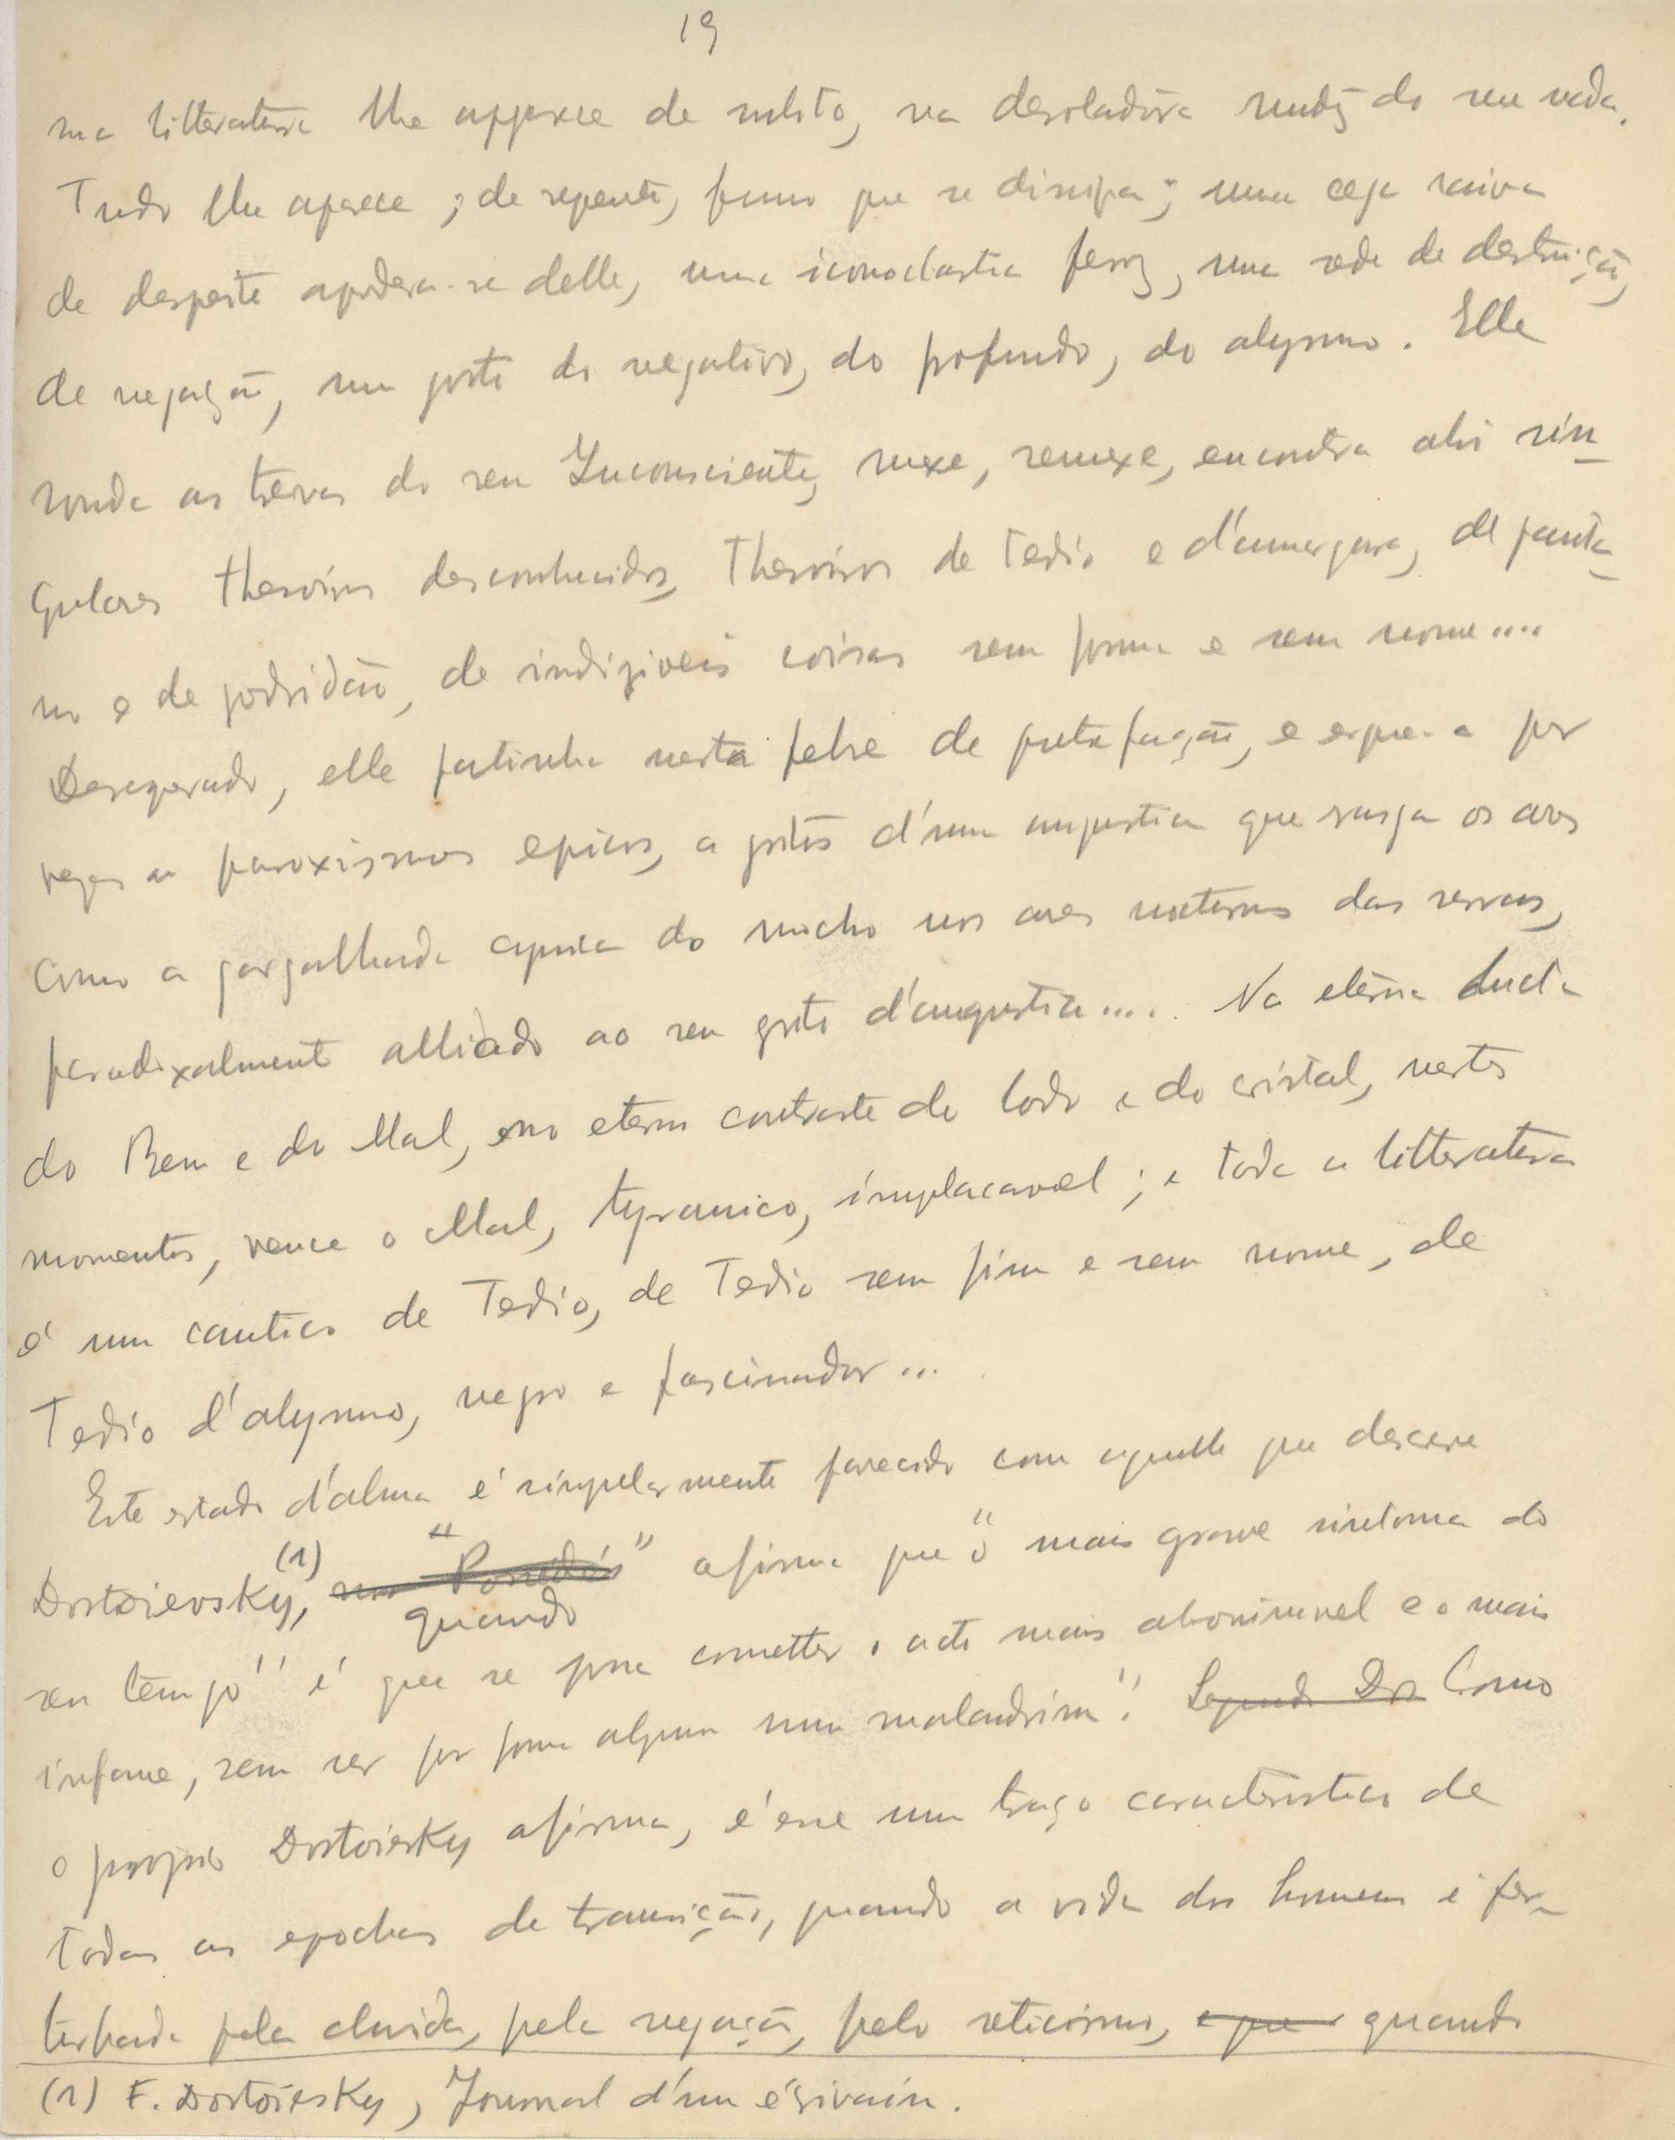 19
ma litteratura lhe apparece de subito, na desoladora nudez do seu nada.
Tudo lhe aparece, de repente, fumo que se dissipa; uma cega raiva
de despeito apodera-se delle, uma iconoclastia feroz, uma sede de destruição,
de negação, um gosto do negativo, do profundo, do abysmo. Elle
sonda as trevas do seu Inconsciente, mexe, remexe, encontra ahi sin-
gulares thesoiros desconhecidos, Thesoiros de Tedio e d'amargura, de panta-
no e de podridão, de indiziveis coisas sem forma e sem nome....
Desesperado, elle patinha nesta febre de putrefacção, e ergue-a por
vezes a paroxismos epicos, a gritos d'uma angustia que rasga os ares
como a gargalhada do mocho nos ares nocturnos das serras,
paradoxalmente alliado ao seu grito d'angustia.... Na eterna lucta
do Bem e do Mal, no eterno contraste do lodo e do cristal, nestes
momentos, vence o Mal, tyranico, implacavel; e toda a litteratura
é um cantico de Tedio, de Tedio sem fim e sem nome, de
Tedio d'abysmo, negro e fascinador...
Este estado d'alma é singularmente parecido com aquelle que descreve
Dostoievsky, (1) nos "Possédés" quando afirma que "o mais grave sintoma do
seu tempo" é que se possa cometter o acto mais abominavel e o mais
infame, sem ser por forma alguma um malandrim". Segundo Dos Como
o proprio Dostoiesky afirma, é esse um traço caracteristico de
todas as epochas de transição, quando a vida dos homens é per-
turbada pela duvida, pela negação, pelo sticismo, e que quando
(1) F. Dostoiesky, Journal d'un écrivain.